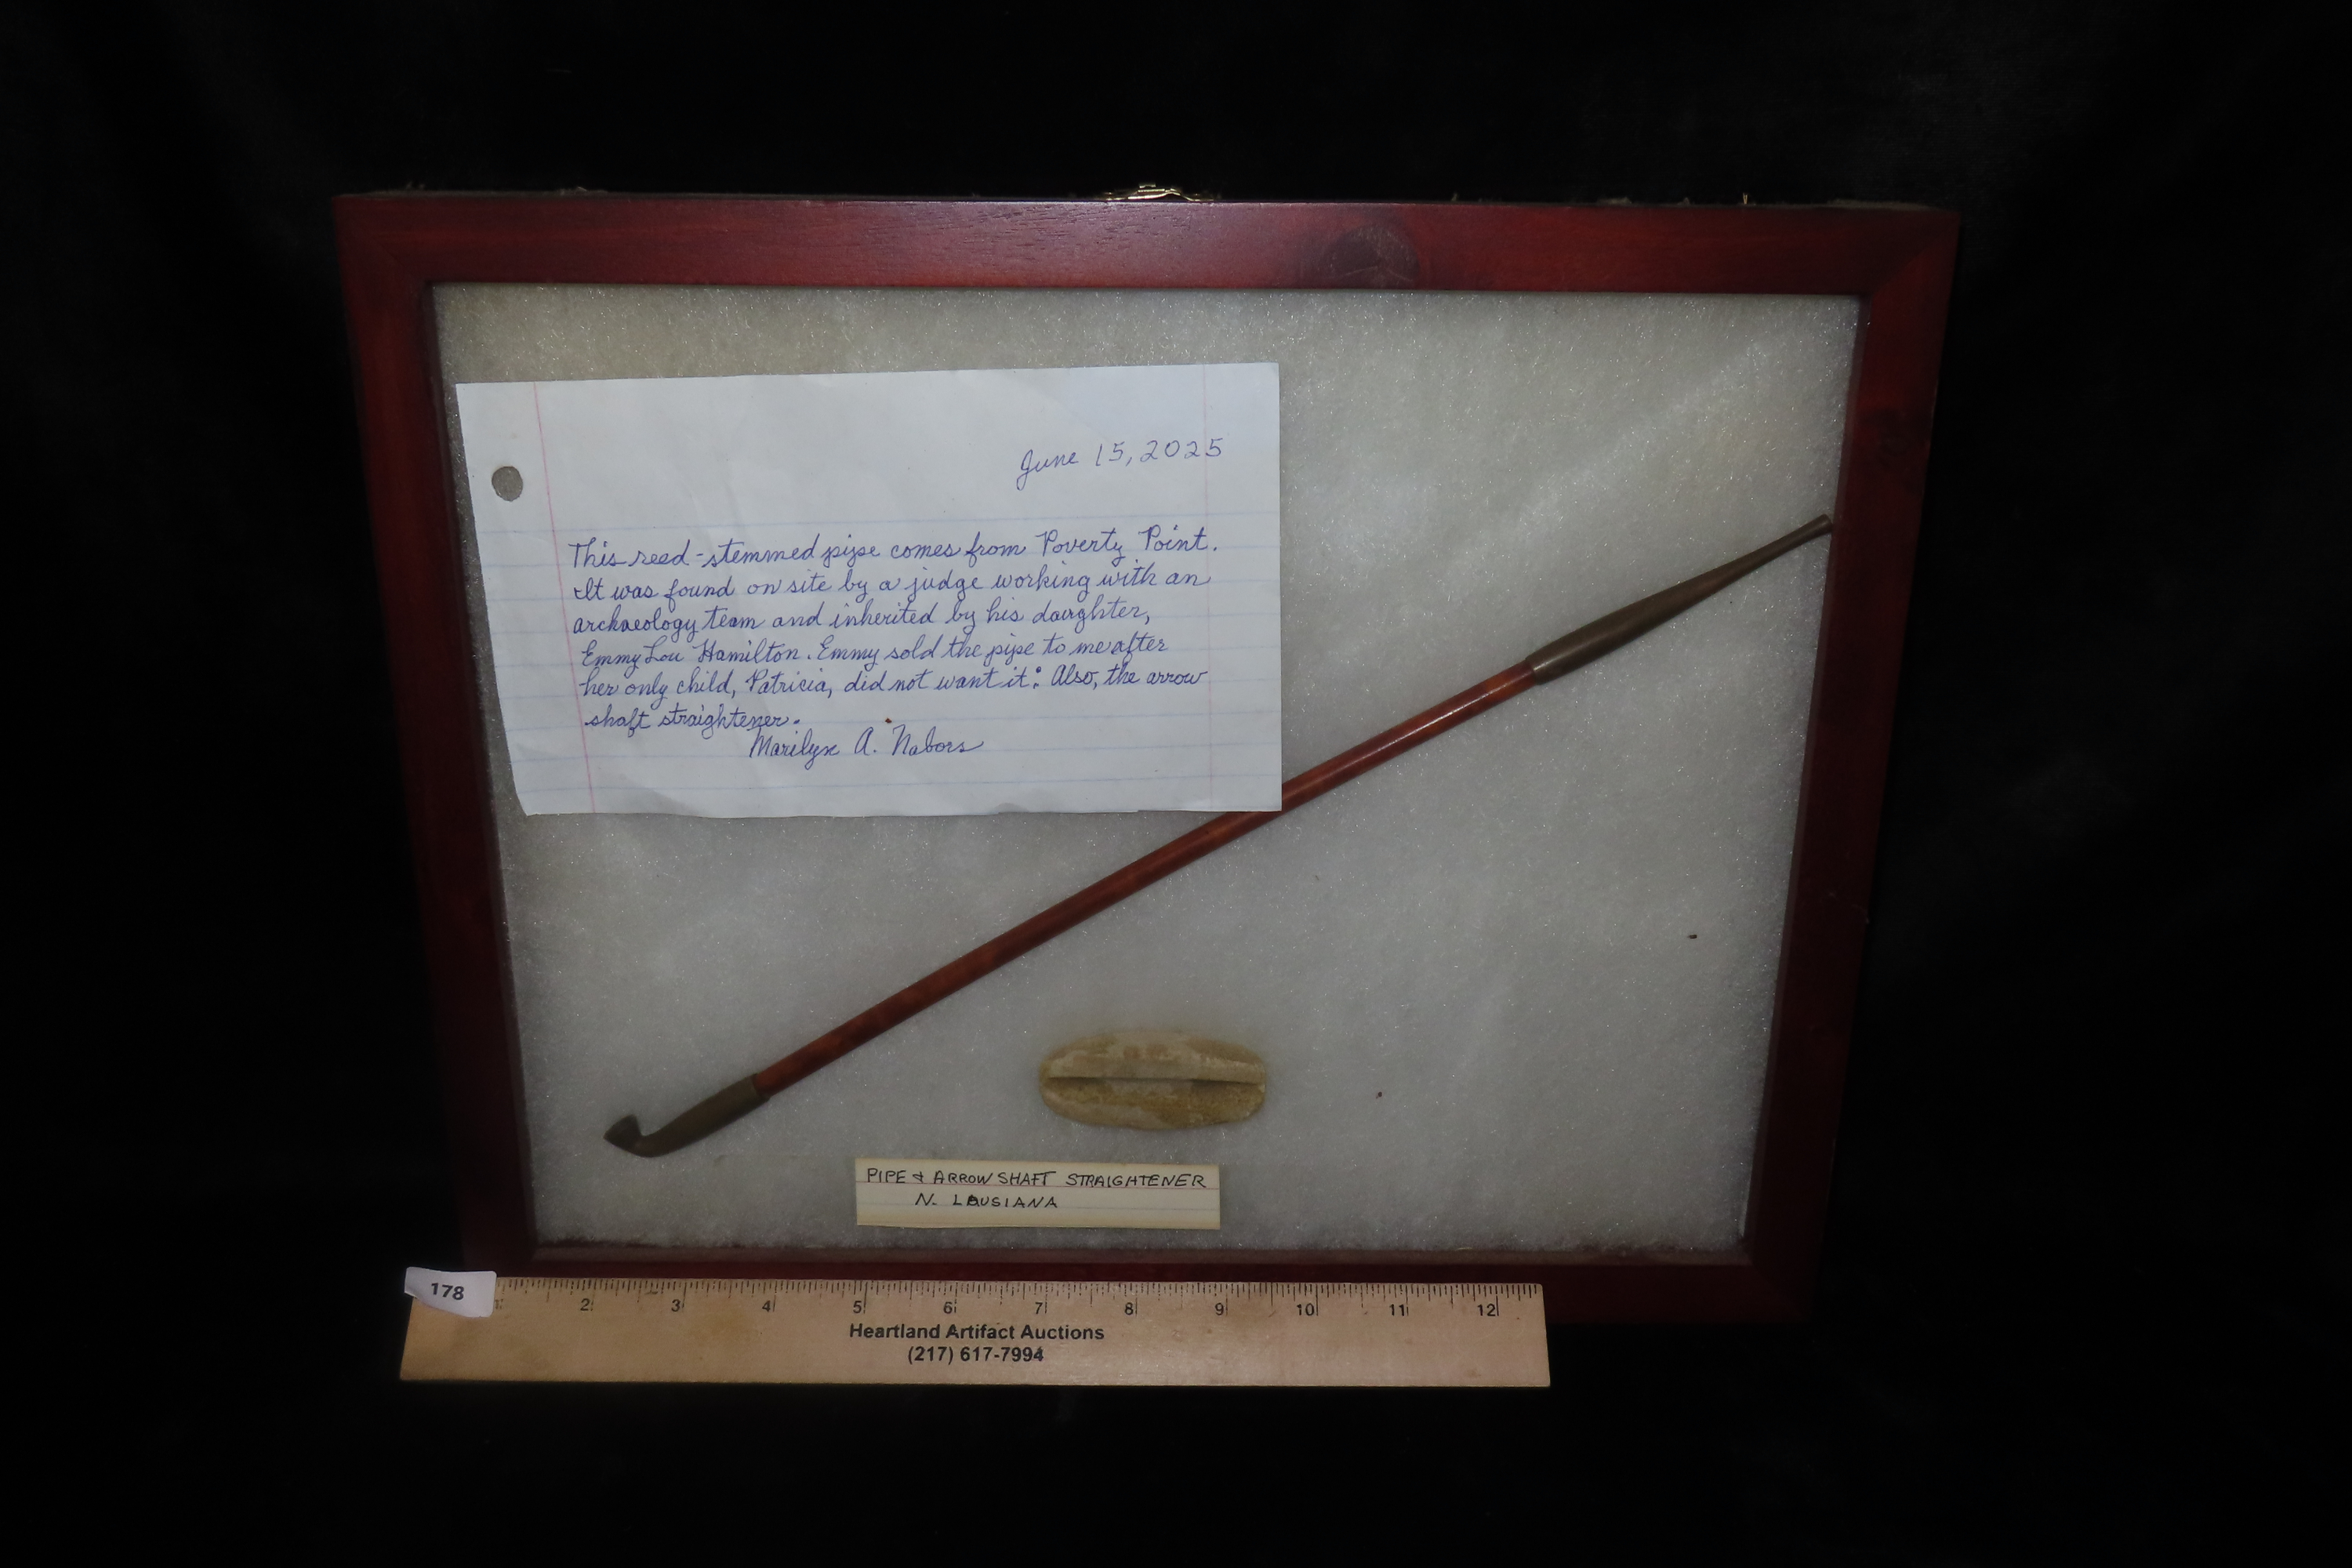 June 15, 2025
This reed-stemmed pipe comes from Poverty Point.
It was found on site by a judge working with an
archaeology team and inherited by his daughter,
Emmy Lou Hamilton. Emmy sold the pipe to me after
her only child, Patricia, did not want it: Also, the arrow
shaft straightener.
Marilyn A. Nabors
PIPE & ARROW SHAFT STRAIGHTENER
N. LOUSIANA
178
2 3 4 5 6 7 8 9 10 11 12
Heartland Artifact Auctions
(217) 617-7994